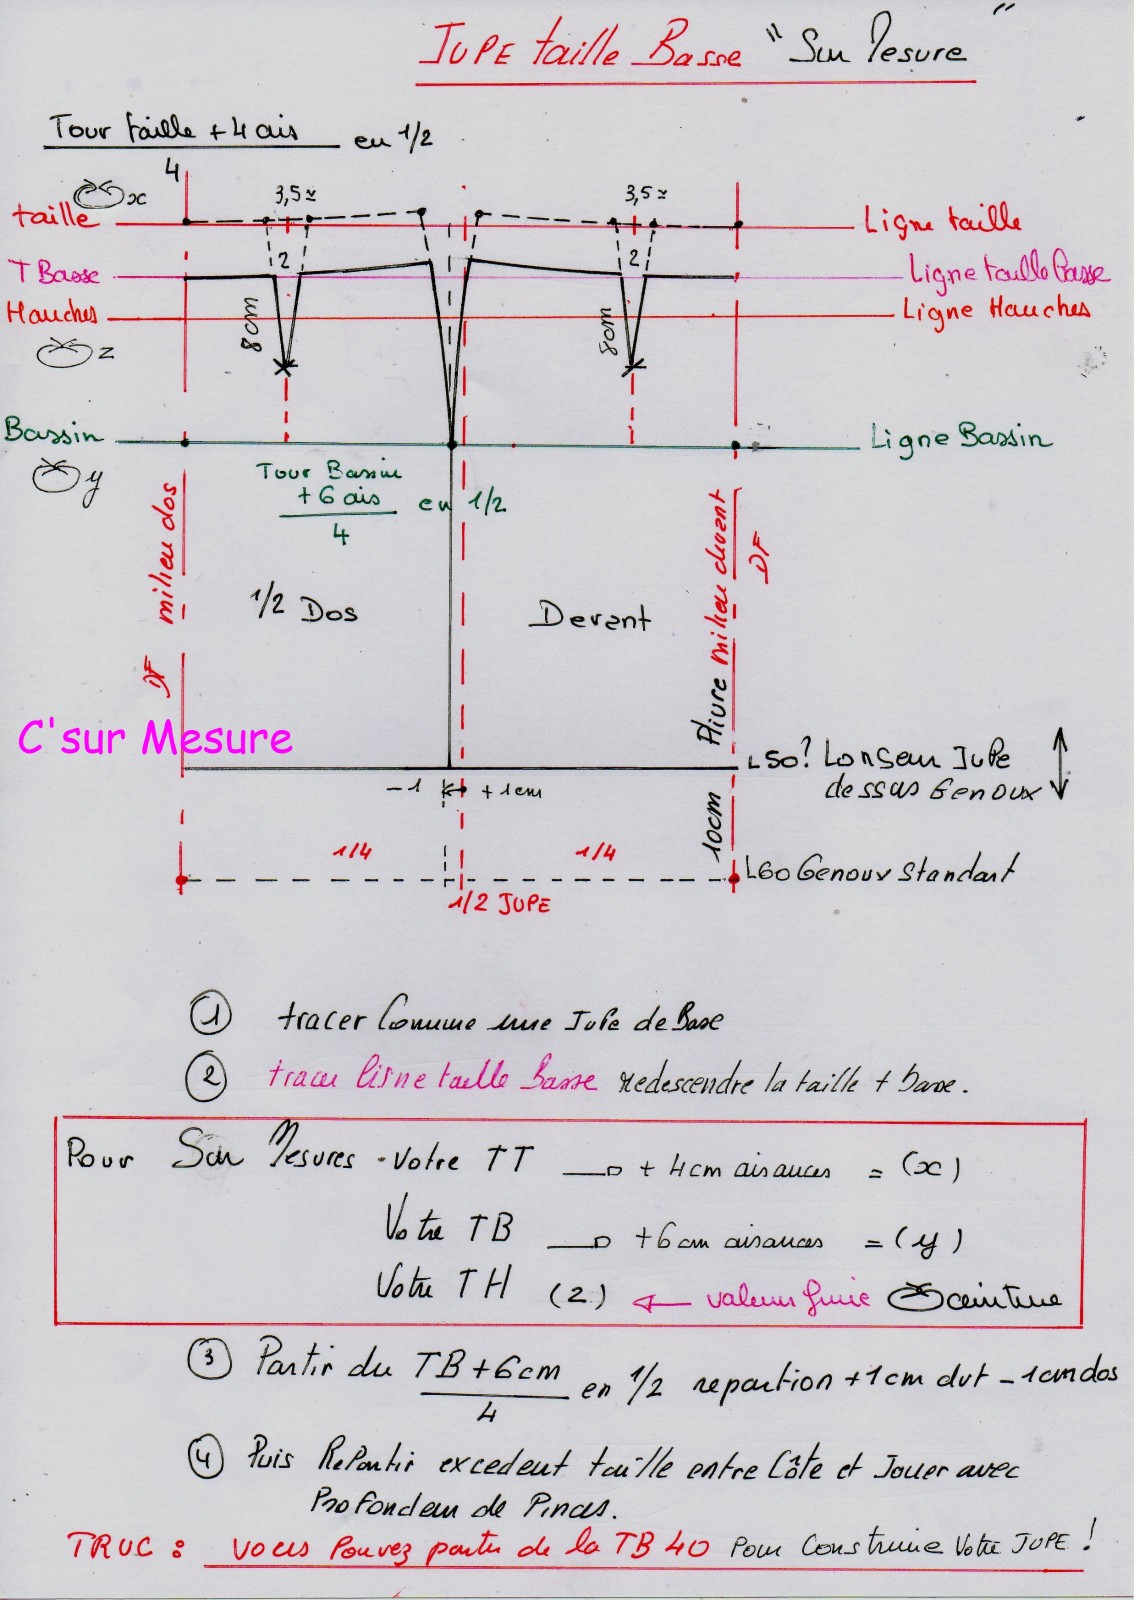 JUPE taille Basse "Sur Mesure"
Tour taille + 4 ais en 1/2
4
x
3,5 ≃
3,5 ≃
taille
Ligne taille
2
2
T Basse
Ligne taille basse
Hanches
Ligne Hanches
8cm
8cm
z
Bassin
Ligne Bassin
y
Tour Bassin
+ 6 ais en 1/2
4
milieu dos
DF
Pliure milieu devant
DF
1/2 Dos
Devant
C'sur Mesure
L50? Longeur Jupe
dessus Genoux
-1
+1cm
10cm
1/4
1/4
L60 Genoux Standart
1/2 JUPE
1 tracer Comme une Jupe de Base
2 tracer ligne taille basse redescendre la taille + basse.
Pour Sur Mesures - Votre TT + 4cm aisances = (x)
Votre TB + 6cm aisances = (y)
Votre TH (z) ← valeur finie ceinture
3 Partir du TB + 6cm en 1/2 repartion +1cm dvt -1cm dos
4
4 Puis Repartir excedent taille entre Côte et Jouer avec
Profondeur de Pinces.
TRUC : vous Pouvez partir de la TB 40 Pour Construire Votre JUPE !